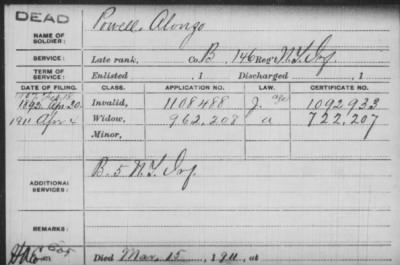 DEAD
NAME OF SOLDIER: Powell, Alonzo
SERVICE: Late rank, Co. B, 146 Reg't N.Y. Inf.
TERM OF SERVICE: Enlisted , 1 Discharged , 1
DATE OF FILING. CLASS. APPLICATION NO. LAW. CERTIFICATE NO.
1892, Apr. 20 Invalid, 1108488 J. 1092933
1911 Apr 4 Widow, 962,208 a 722,207
Minor,
ADDITIONAL SERVICES: B. 5 N.Y. Inf.
REMARKS:
Died Mar. 15, 1911, at